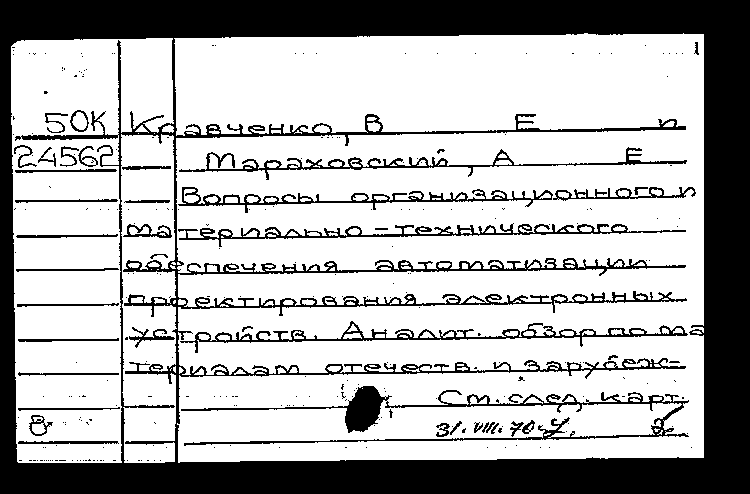 1
50К Кравченко, В Е и
24562 Мараховский, А Е
Вопросы организационного и
материально-технического
обеспечения автоматизации
проектирования электронных
устройств. Аналит. обзор по ма
териалам отечеств. и зарубеж-
См. след. карт.
8 31.VIII.70